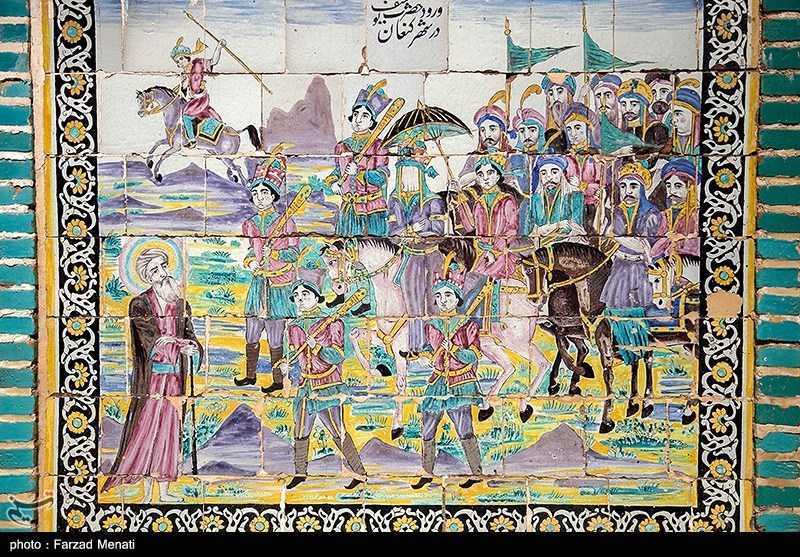 ورود حضرت یوسف
در شهر کنعان
photo : Farzad Menati